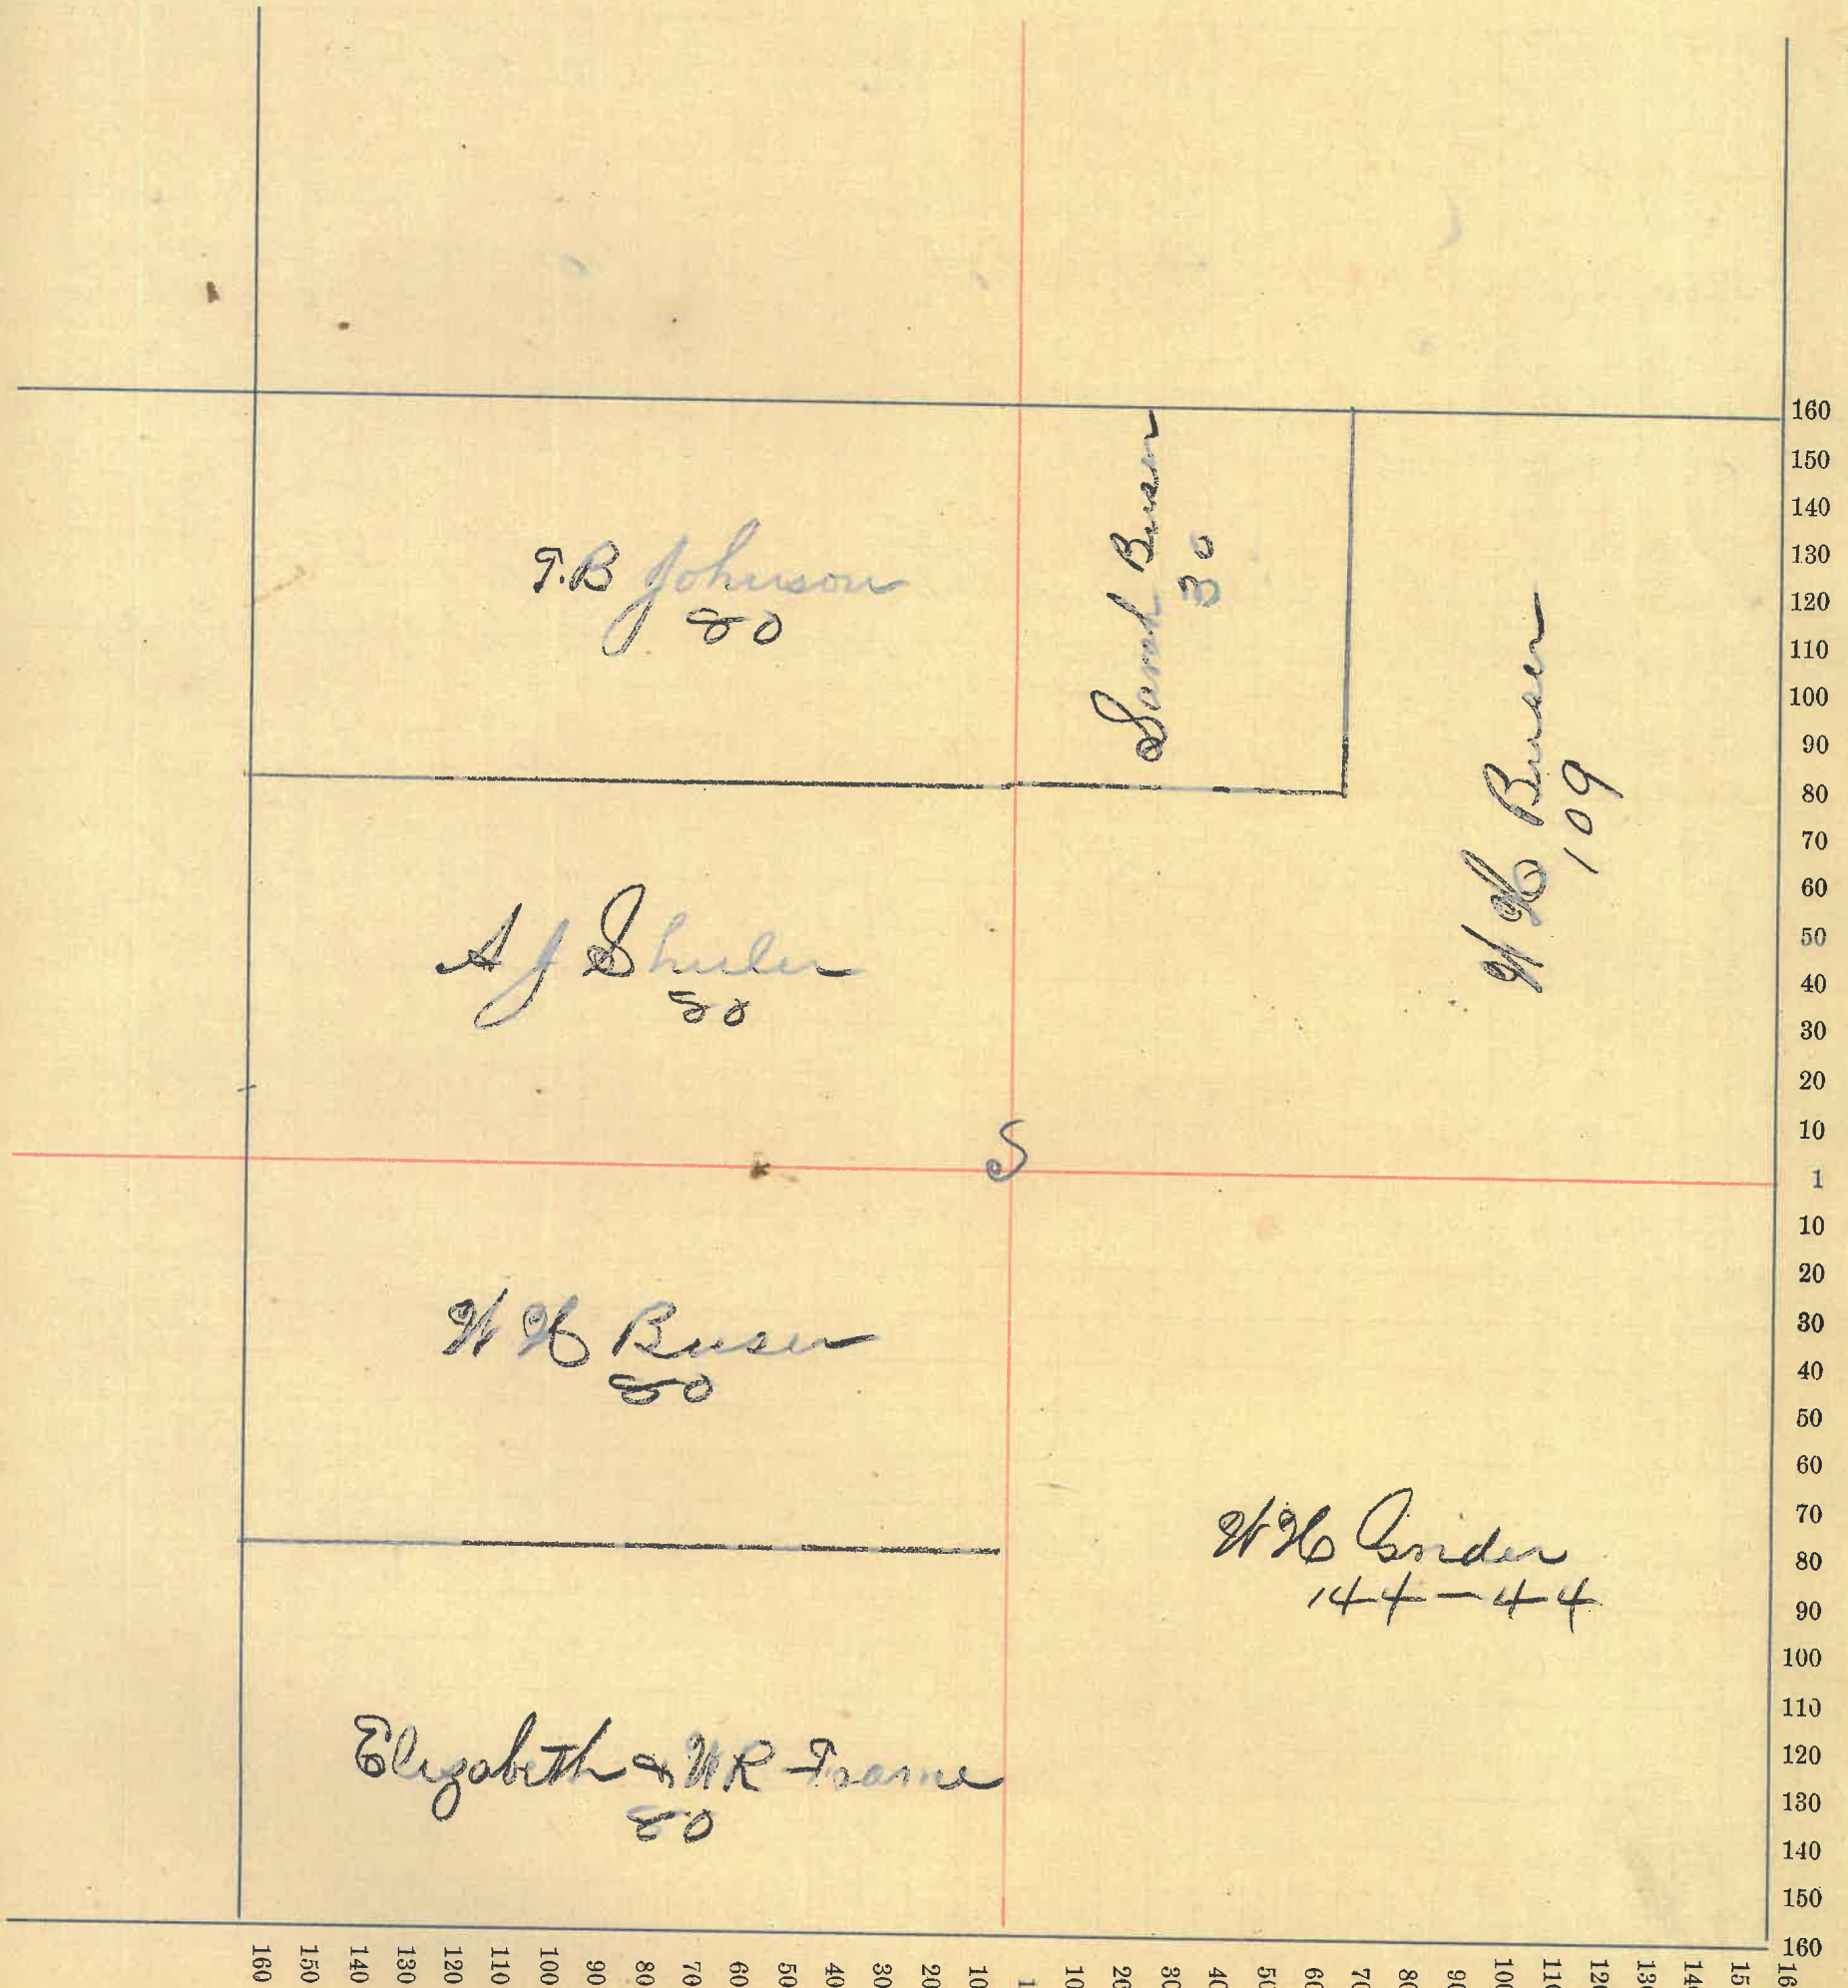 T.B Johnson
80
Sarah Buser
30
W H Buser
109
A J Shuler
80
S
W H Buser
80
W H Crider
144-44
Elizabeth & W R Frame
80
160
150
140
130
120
110
100
90
80
70
60
50
40
30
20
10
1
10
20
30
40
50
60
70
80
90
100
110
120
130
140
150
160
160 150 140 130 120 110 100 90 80 70 60 50 40 30 20 10 1 10 20 30 40 50 60 70 80 90 100 110 120 130 14 15 16